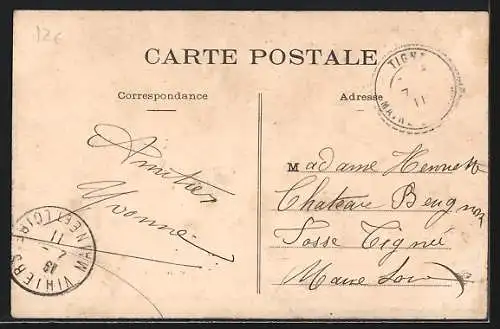 12€
CARTE POSTALE
Correspondance
Adresse
TIGNÉ
7
11
Amitiés
Yvonne
Madame Henriette
Chateau Beugnon
Fosse Tigné
Maine Loire
VIHIERS
MAINE-ET-LOIRE